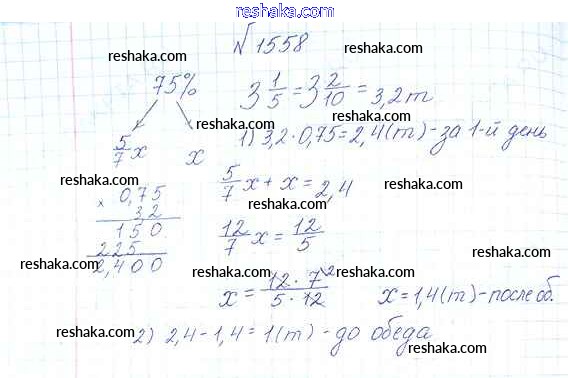 reshaka.com
№1558
reshaka.com reshaka.com
75% 3 1/5 = 3 2/10 = 3,2 т
reshaka.com
reshaka.com
5/7 x x 1) 3,2·0,75=2,4(т)-за 1-й день
reshaka.com
reshaka.com reshaka.com
× 0,75 5/7 x + x = 2,4
3,2 reshaka.com
150 12/7 x = 12/5
225
2,400 reshaka.com
reshaka.com
reshaka.com reshaka.com
x = 12·7/5·12 x = 1,4(т)-после об.
reshaka.com reshaka.com
2) 2,4-1,4=1(т)-до обеда
reshaka.com
reshaka.com